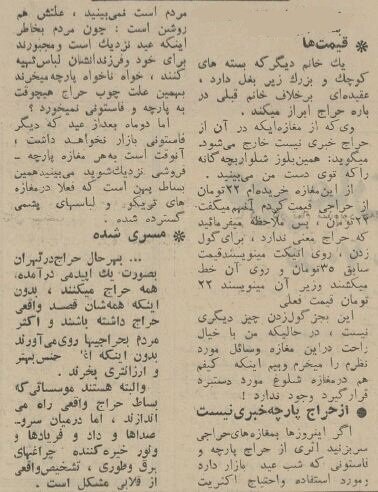 ✱ قیمت‌ها
یك خانم دیگر که بسته های
کوچك و بزرك زیر بغل دارد ،
عقیده‌ای برخلاف خانم قبلی در
باره حراج ابراز میکند .
وی که از مغازه‌ایکه در آن از
حراج خبری نیست خارج می‌شود.
میگوید: همین بلوز شلواربچه‌گانه
راکه توی دست من می‌بینید .
از این‌مغازه خریده‌ام ۲۲تومان
از حراجی قیمت‌کردم آنهم‌میگفت.
۲۲تومن ، پس ملاحظه میفرمائید
که حراج معنی ندارد ، برای‌گول
زدن ، روی اتیکت مینویسندقیمت
سابق ۳۵تومان و روی آن خط
میکشند وزیر آن مینویسند ۲۲
تومان قیمت فعلی
این بجزگول‌زدن چیز دیگری
نیست ، در حالیکه من با خیال
راحت دراین مغازه وسائل مورد
نظرم را میخرم وبیم اینکه کیفم
هم درمغازه شلوغ مورد دستبرد
قرارگیرد وجود ندارد !
● از حراج پارچه خبری نیست
اگر اینروزها بمغازه‌های‌حراجی
سربزنید اثری از حراج پارچه و
فاستونی که شب عید بازار دارد
ومورد استفاده واحتیاج اکثریت
مردم است نمی‌بینید ، علتش هم
روشن است : چون مردم بخاطر
اینکه عید نزدیك است ومجبورند
برای خود وفرزندانشان لباس‌تهیه
کنند ، خواه ناخواه پارچه‌میخرند
بهمین علت چوب حراج هیچوقت
به پارچه و فاستونی نمیخورد ؟
اما دوماه بعداز عید که دیگر
فاستونی بازار نخواهد داشت ،
آنوقت است به‌هر مغازه پارچه ـ
فروشی نزدیك‌شوید می‌بینیدهمین
بساط پهن است که فعلا درمغازه
های تریکو، و لباسهای پشمی
گسترده شده .
✱ مسری شده
... بهر حال حراج‌در‌تهران
بصورت یك اپیدمی درآمده،
همه حراج میکنند ، بدون
اینکه همه‌شان قصد واقعی
حراج داشته باشند و اکثر
مردم بحراجیها روی‌می‌آورند
بدون اینکه جنس‌بهتر
و ارزانتری بخرند .
والبته هستند موسساتی‌که
بساط حراج واقعی راه می
اندازند ، اما درمیان سروـ
صداها و داد و فریادها و
ونور خیره‌کننده چراغهای
برق وطوری ، تشخیص‌واقعی
از قلابی مشکل است .